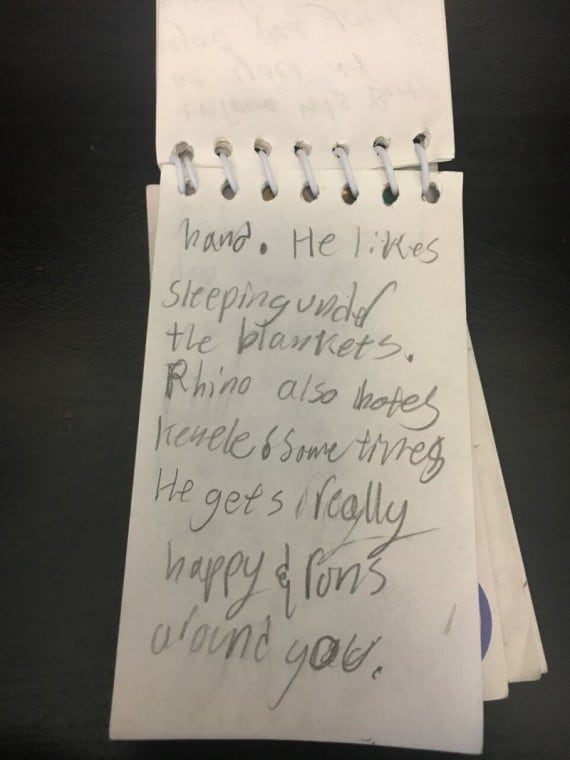 hand. He likes
sleeping undr
the blankets.
Rhino also hates
kenele & Some times
He gets really
happy & rons
around you.